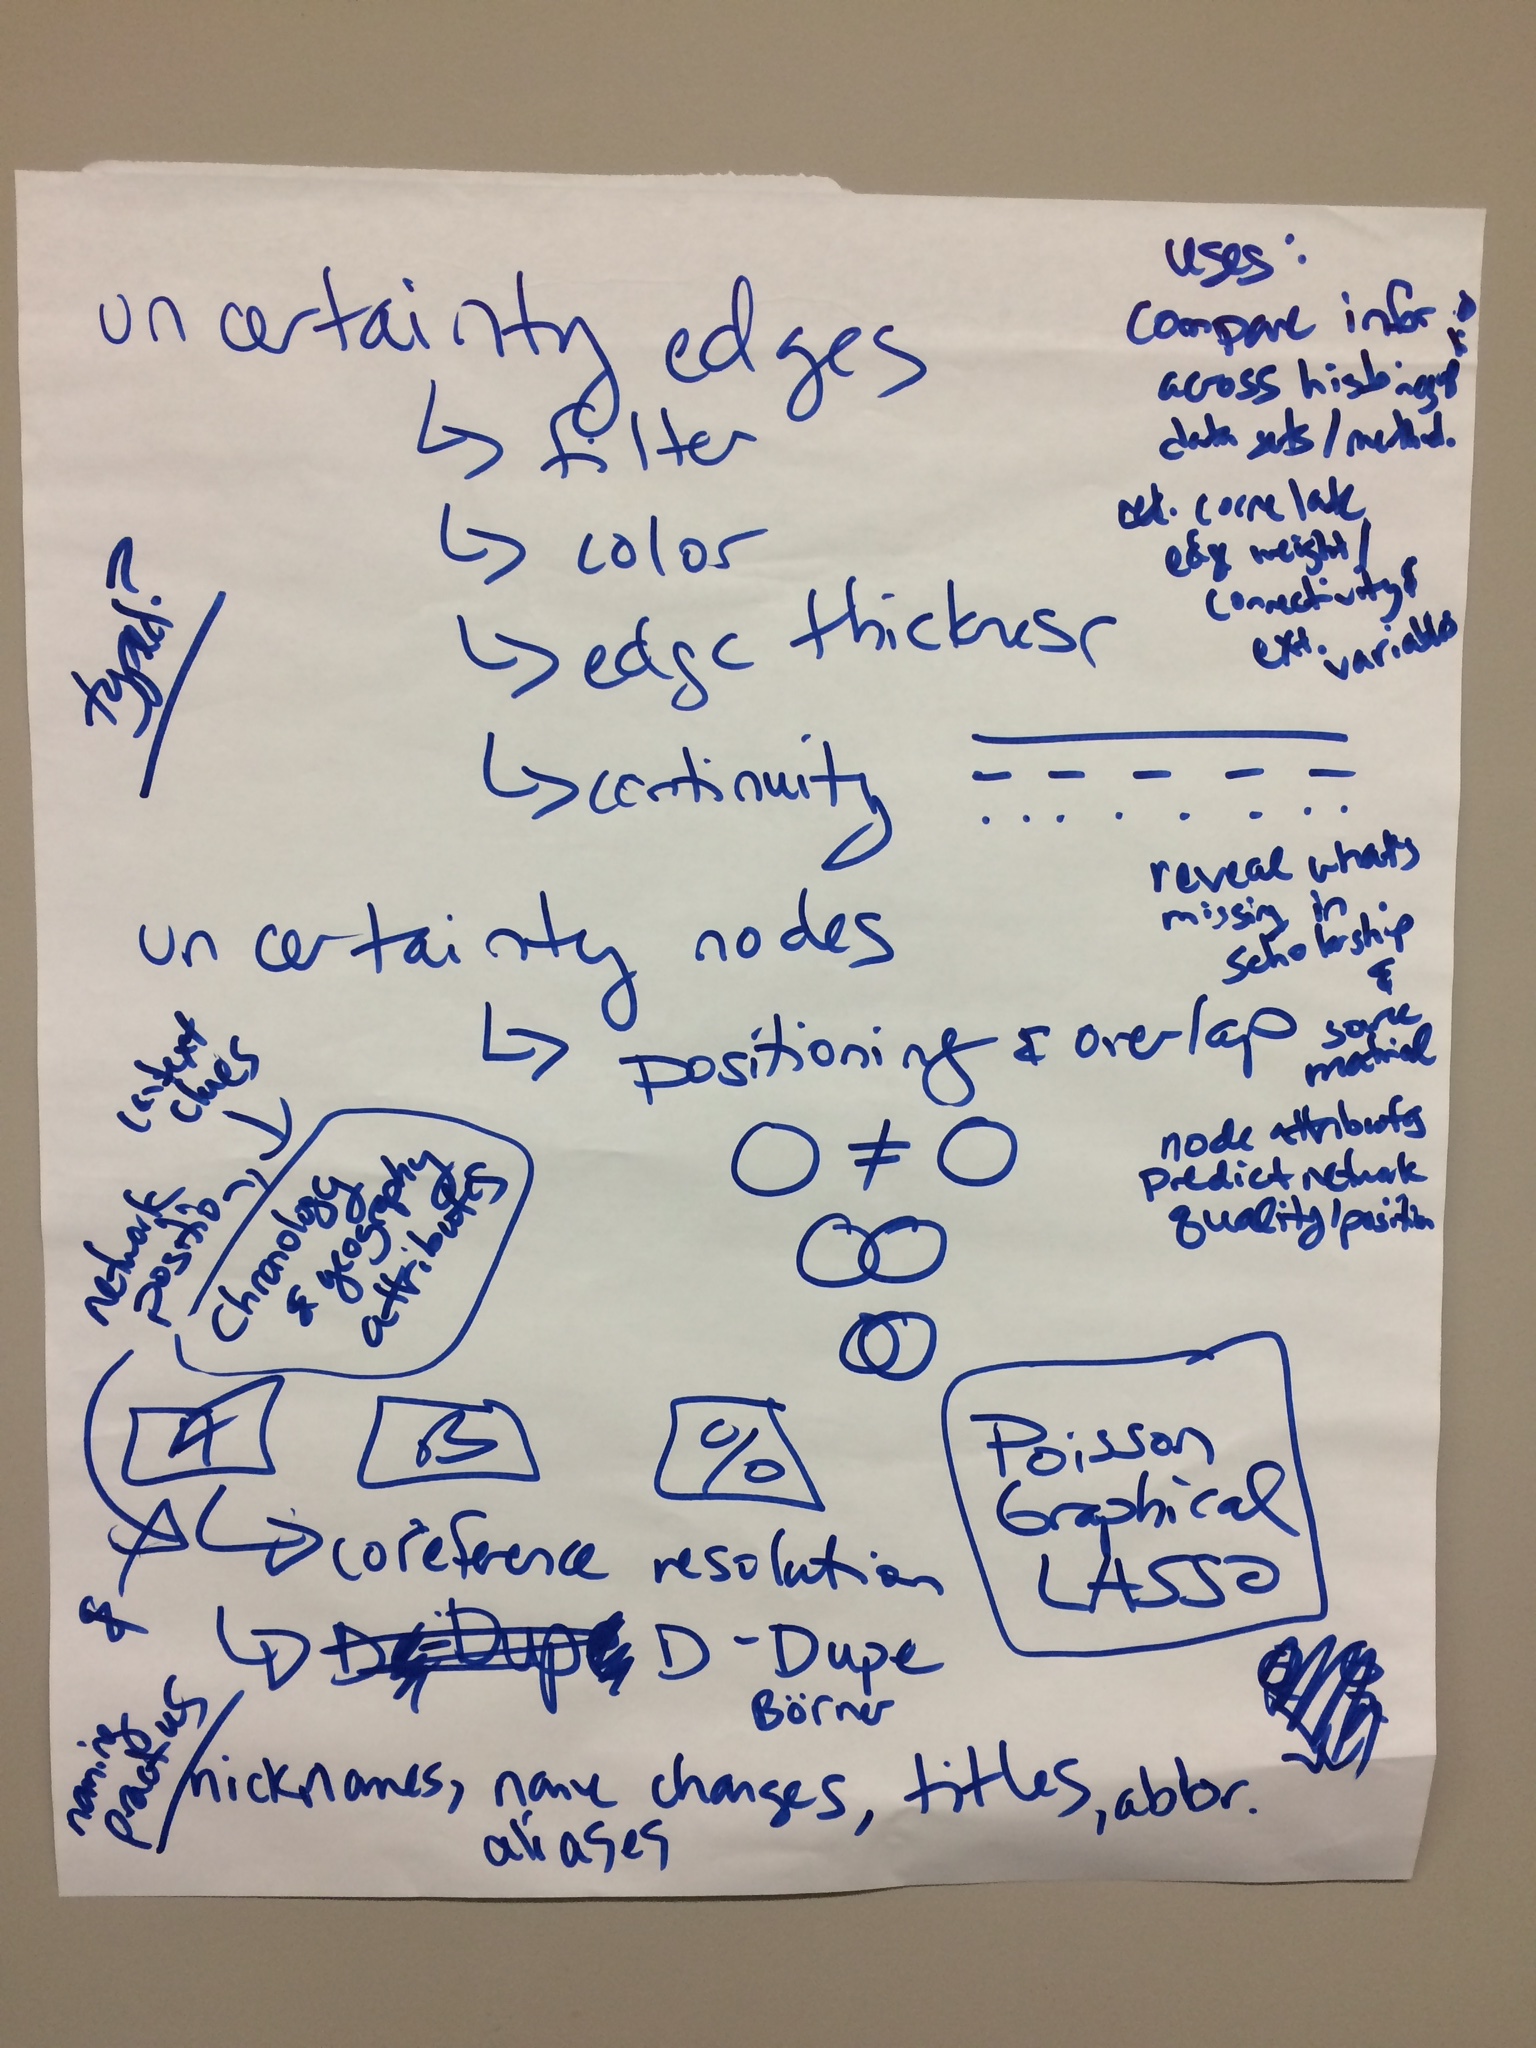 uncertainty edges
↳ filter
↳ color
↳ edge thickness
↳ continuity
typed?
uses:
compare infor
across
data sets / method.
correlate
edge weight /
connectivity &
ext. variables
reveal what's
missing in
scholarship
&
source
material
node attributes
predict network
quality / position
uncertainty nodes
↳ positioning & overlap
≠
context
clues
network
position
chronology
& geography
attributes
A B %
↳ coreference resolution
&
↳ D-Dupe
Börner
Poisson
Graphical
LASSO
naming
practices
nicknames, name changes, titles, abbr.
aliases